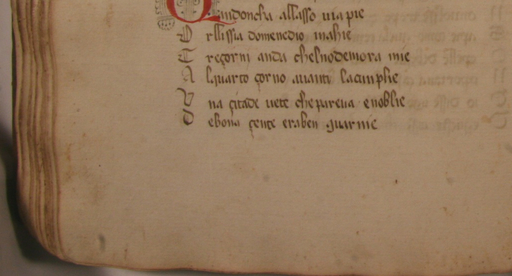 Quandoncha allasso uia pie
O rllissia domenedio mahie
T regorni anda chelnodemora mie
A lquarto gorno auanti lacinplie
V na çitade uete chepareua enoblie
D ebona çente eraben guarnie